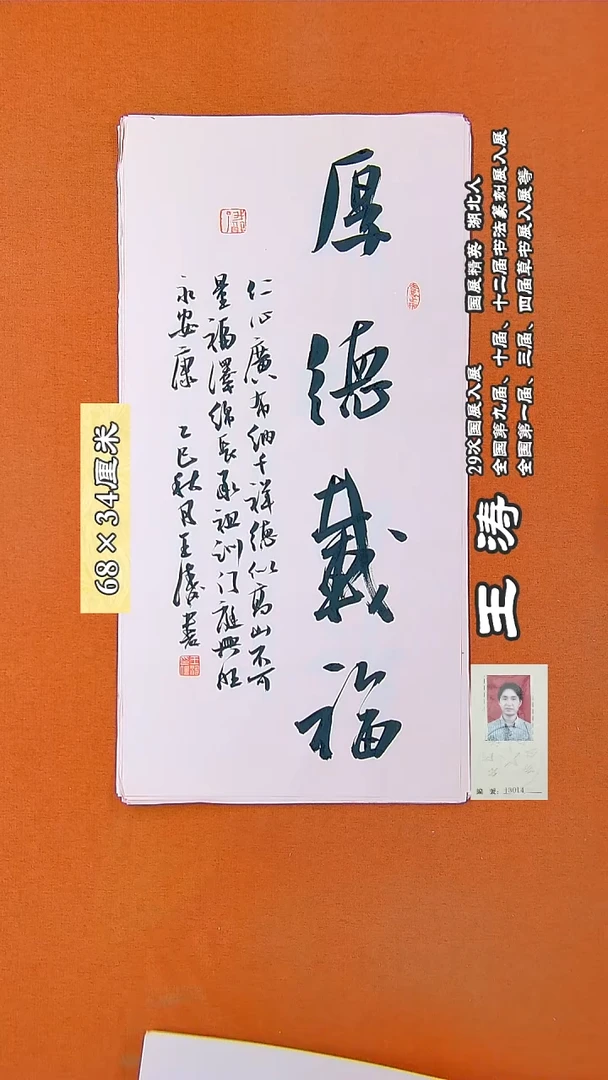 厚德载福
仁心廣布納千祥德似高山不可
量福澤綿長承祖訓门庭興旺
永安康 乙巳秋月王涛書
68×34厘米
王涛
29次国展入展 国展精英 湖北人
全国第九届、十届、十二届书法篆刻展入展
全国第一届、三届、四届草书展入展等
编号：19014